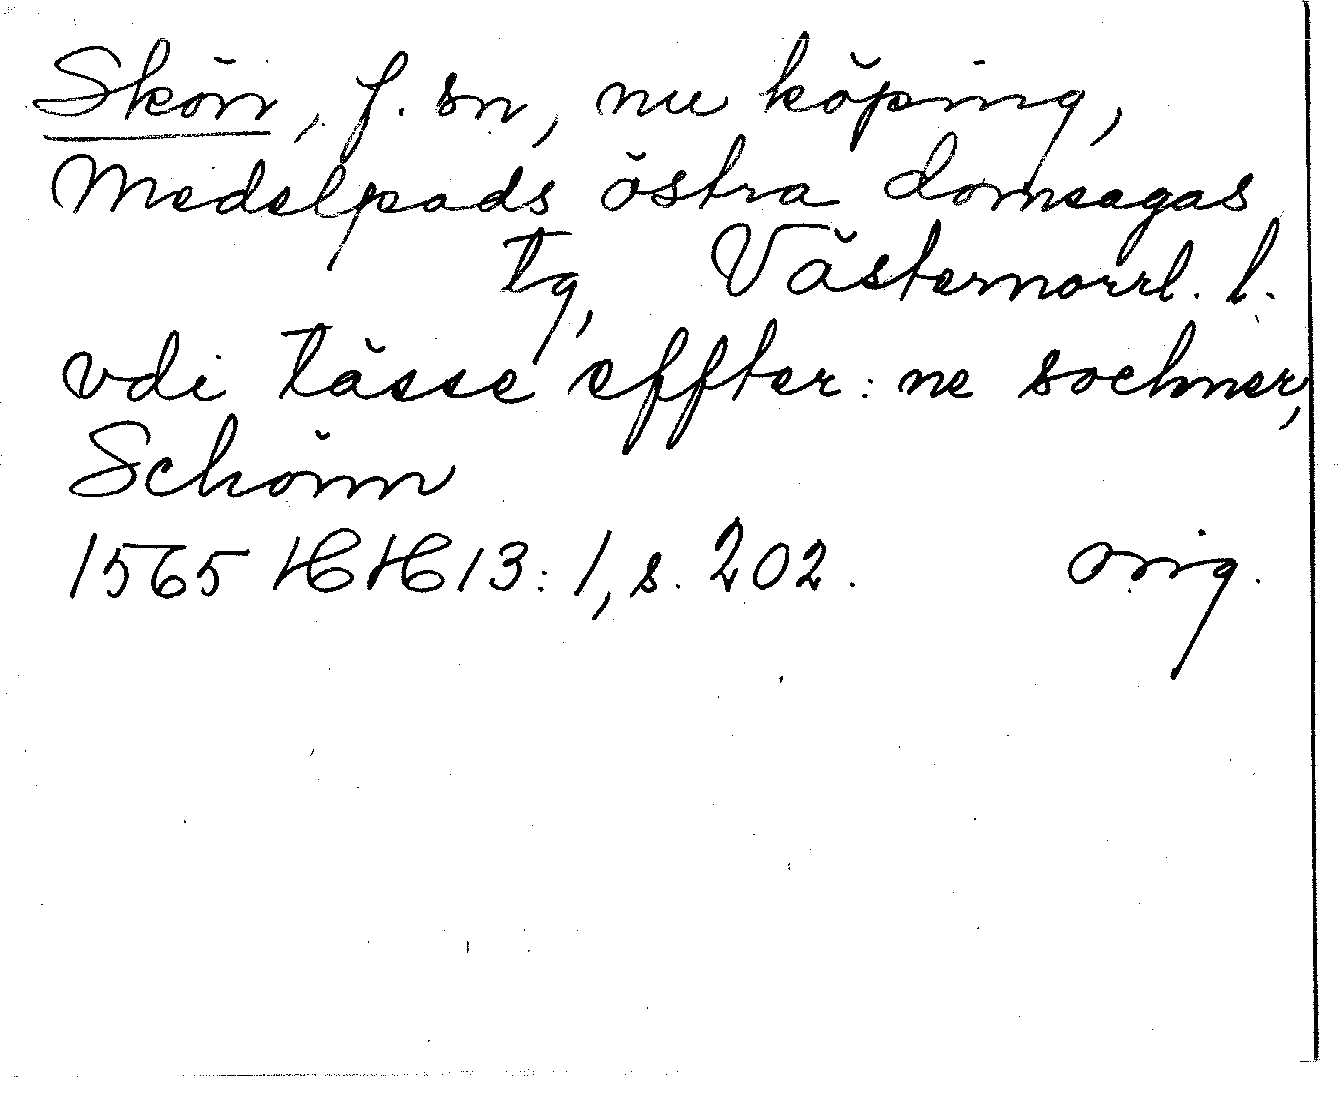 Skön, f. sn, nu köping,
Medelpads östra domsagas
tg, Västernorrl. l.
vdi tässe effter: ne sochner,
Schönn
1565 HH 13: 1, s. 202. orig.